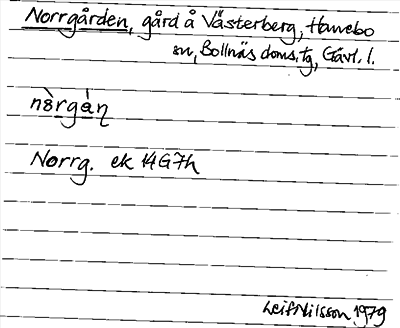 Norrgården, gård å Västerberg, Hanebo
sn, Bollnäs doms.tg, Gävl. l.
nòrgàṇ
Norrg. ek 14G7h
Leif Nilsson 1979